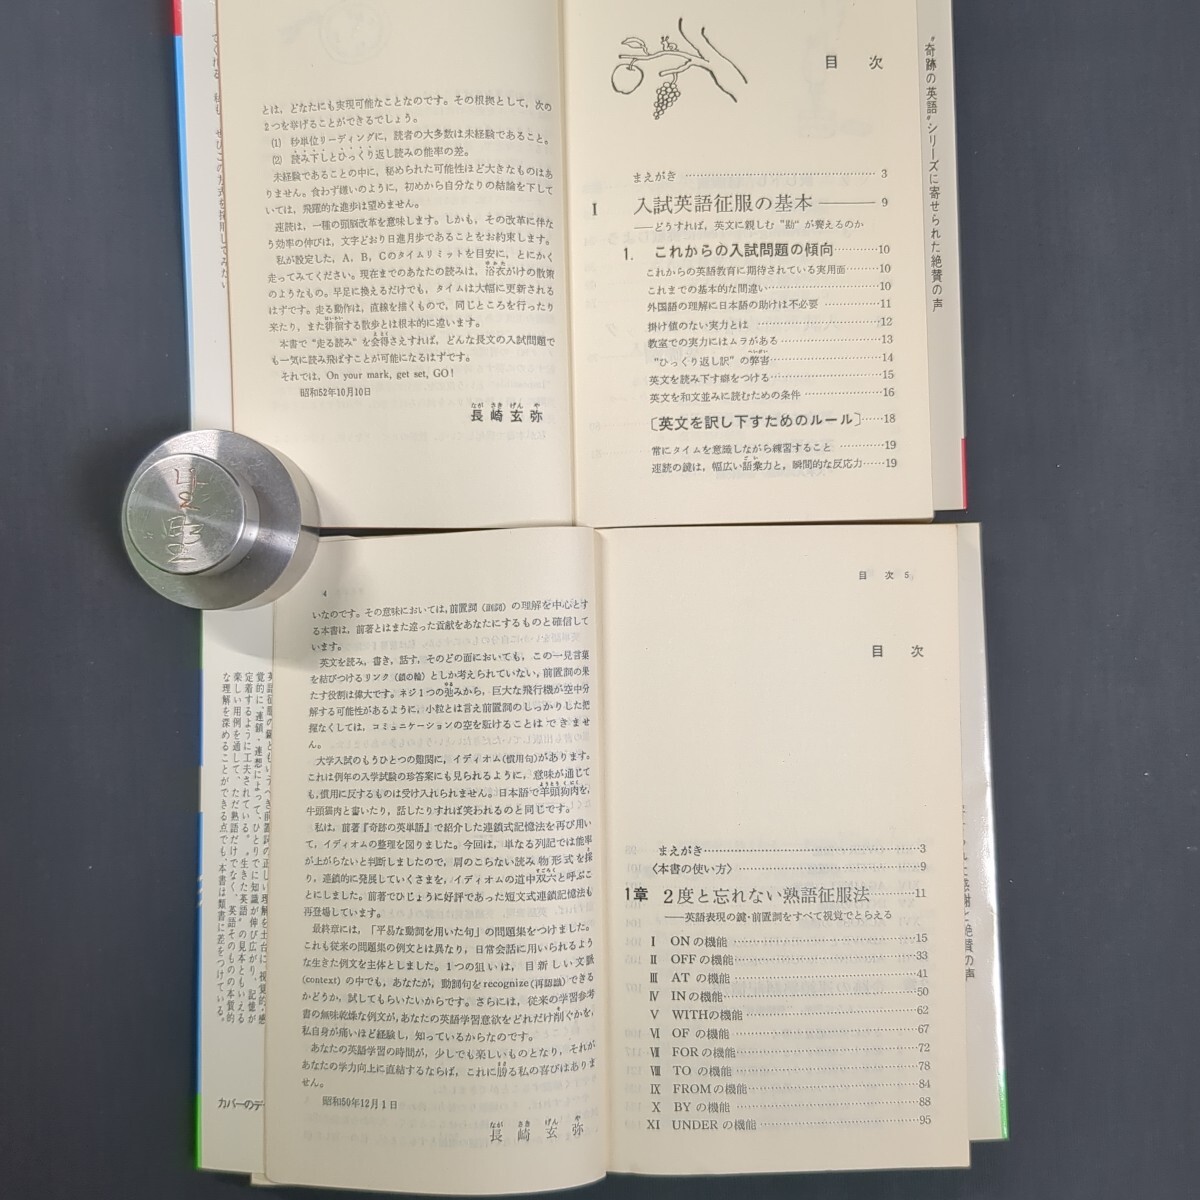 とは、どなたにも実現可能なことなのです。その根拠として、次の
2つを挙げることができるでしょう。
(1) 秒単位リーディングに、読者の大多数は未経験であること。
(2) 読み下しとひっくり返し読みの能率の差。
未経験であることの中に、秘められた可能性ほど大きなものはあ
りません。食わず嫌いのように、初めから自分なりの結論を下して
いては、飛躍的な進歩は望めません。
速読は、一種の頭脳改革を意味します。しかも、その改革に伴な
う効率の伸びは、文字どおり日進月歩であることをお約束します。
私が設定した、A、B、Cのタイムリミットを目安に、とにかく
走ってみてください。現在までのあなたの読みは、浴衣がけの散策
のようなもの。早足に換えるだけでも、タイムは大幅に更新される
はずです。走る動作は、直線を描くもので、同じところを行ったり
来たり、また徘徊する散歩とは根本的に違います。
本書で“走る読み”を会得さえすれば、どんな長文の入試問題で
も一気に読み飛ばすことが可能になるはずです。
それでは、On your mark, get set, GO!
昭和52年10月10日
長崎玄弥
目 次
まえがき…3
I 入試英語征服の基本——9
——どうすれば、英文に親しむ“勘”が養えるのか
1. これからの入試問題の傾向…10
これからの英語教育に期待されている実用面…10
これまでの基本的な間違い…10
外国語の理解に日本語の助けは不必要…11
掛け値のない実力とは…12
教室での実力にはムラがある…13
“ひっくり返し訳”の弊害…14
英文を読み下す癖をつける…15
英文を和文並みに読むための条件…16
〔英文を訳し下すためのルール〕…18
常にタイムを意識しながら練習すること…19
速読の鍵は、幅広い語彙力と、瞬間的な反応力…19
“奇跡の英語”シリーズに寄せられた絶賛の声
4
いなのです。その意味においては、前置詞(副詞)の理解を中心とす
る本書は、前著とはまた違った貢献をあなたにするものと確信して
います。
英文を読み、書き、話す、そのどの面においても、この一見言葉
を結びつけるリンク(鎖の輪)としか考えられていない、前置詞の果
たす役割は偉大です。ネジ1つの弛みから、巨大な飛行機が空中分
解する可能性があるように、小粒とは言え前置詞のしっかりした把
握なくしては、コミュニケーションの空を駈けることはできませ
ん。
大学入試のもうひとつの難関に、イディオム(慣用句)があります。
これは例年の入学試験の珍答案にも見られるように、意味が通じて
も、慣用に反するものは受け入れられません。日本語で羊頭狗肉を、
牛頭猫肉と書いたり、話したりすれば笑われるのと同じです。
私は、前著『奇跡の英単語』で紹介した連鎖式記憶法を再び用い
て、イディオムの整理を図りました。今回は、単なる列記では能率
が上がらないと判断しましたので、肩のこらない読み物形式を採
り、連鎖的に発展していくさまを、イディオムの道中双六と呼ぶこ
とにしました。前著でひじょうに好評であった短文式連鎖記憶法も
再登場しています。
最終章には、「平易な動詞を用いた句」の問題集をつけました。
これも従来の問題集の例文とは異なり、日常会話に用いられるよう
な生きた例文を主体としました。1つの狙いは、目新しい文脈
(context)の中でも、あなたが、動詞句をrecognize(再認識)できる
かどうか、試してもらいたいからです。さらには、従来の学習参考
書の無味乾燥な例文が、あなたの英語学習意欲をどれだけ削ぐかを、
私自身が痛いほど経験し、知っているからなのです。
あなたの英語学習の時間が、少しでも楽しいものとなり、それが
あなたの学力向上に直結するならば、これに勝る私の喜びはありま
せん。
昭和50年12月1日
長崎玄弥
目 次 5
目 次
まえがき…3
〈本書の使い方〉…9
1章 2度と忘れない熟語征服法…11
——英語表現の鍵・前置詞をすべて視覚でとらえる
I ONの機能…15
II OFFの機能…33
III ATの機能…41
IV INの機能…50
V WITHの機能…62
VI OFの機能…67
VII FORの機能…72
VIII TOの機能…78
IX FROMの機能…84
X BYの機能…88
XI UNDERの機能…95
定着するように工夫されている。“生きた英語”の見本ともいえる
楽しい用例を通して、ただ熟語だけでなく、英語そのものの本質的
な理解を深めることができる点でも、本書は類書に差をつけている。
カバーのデ